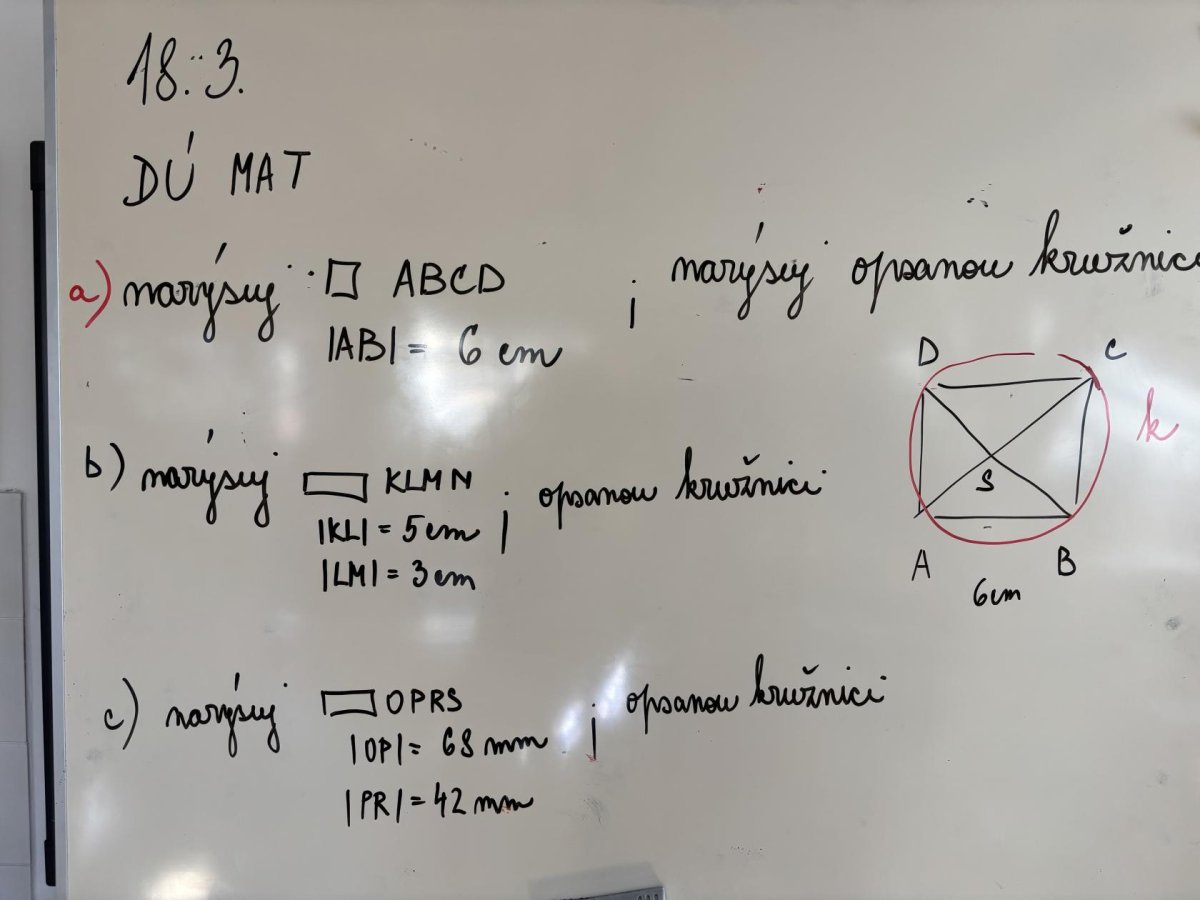 18. 3.
DÚ MAT
a) narýsuj □ ABCD ; narýsuj opsanou kružnici
|AB| = 6 cm
D C
k
S
A B
6cm
b) narýsuj ▭ KLMN ; opsanou kružnici
|KL| = 5cm
|LM| = 3cm
c) narýsuj ▭ OPRS ; opsanou kružnici
|OP| = 68 mm
|PR| = 42 mm